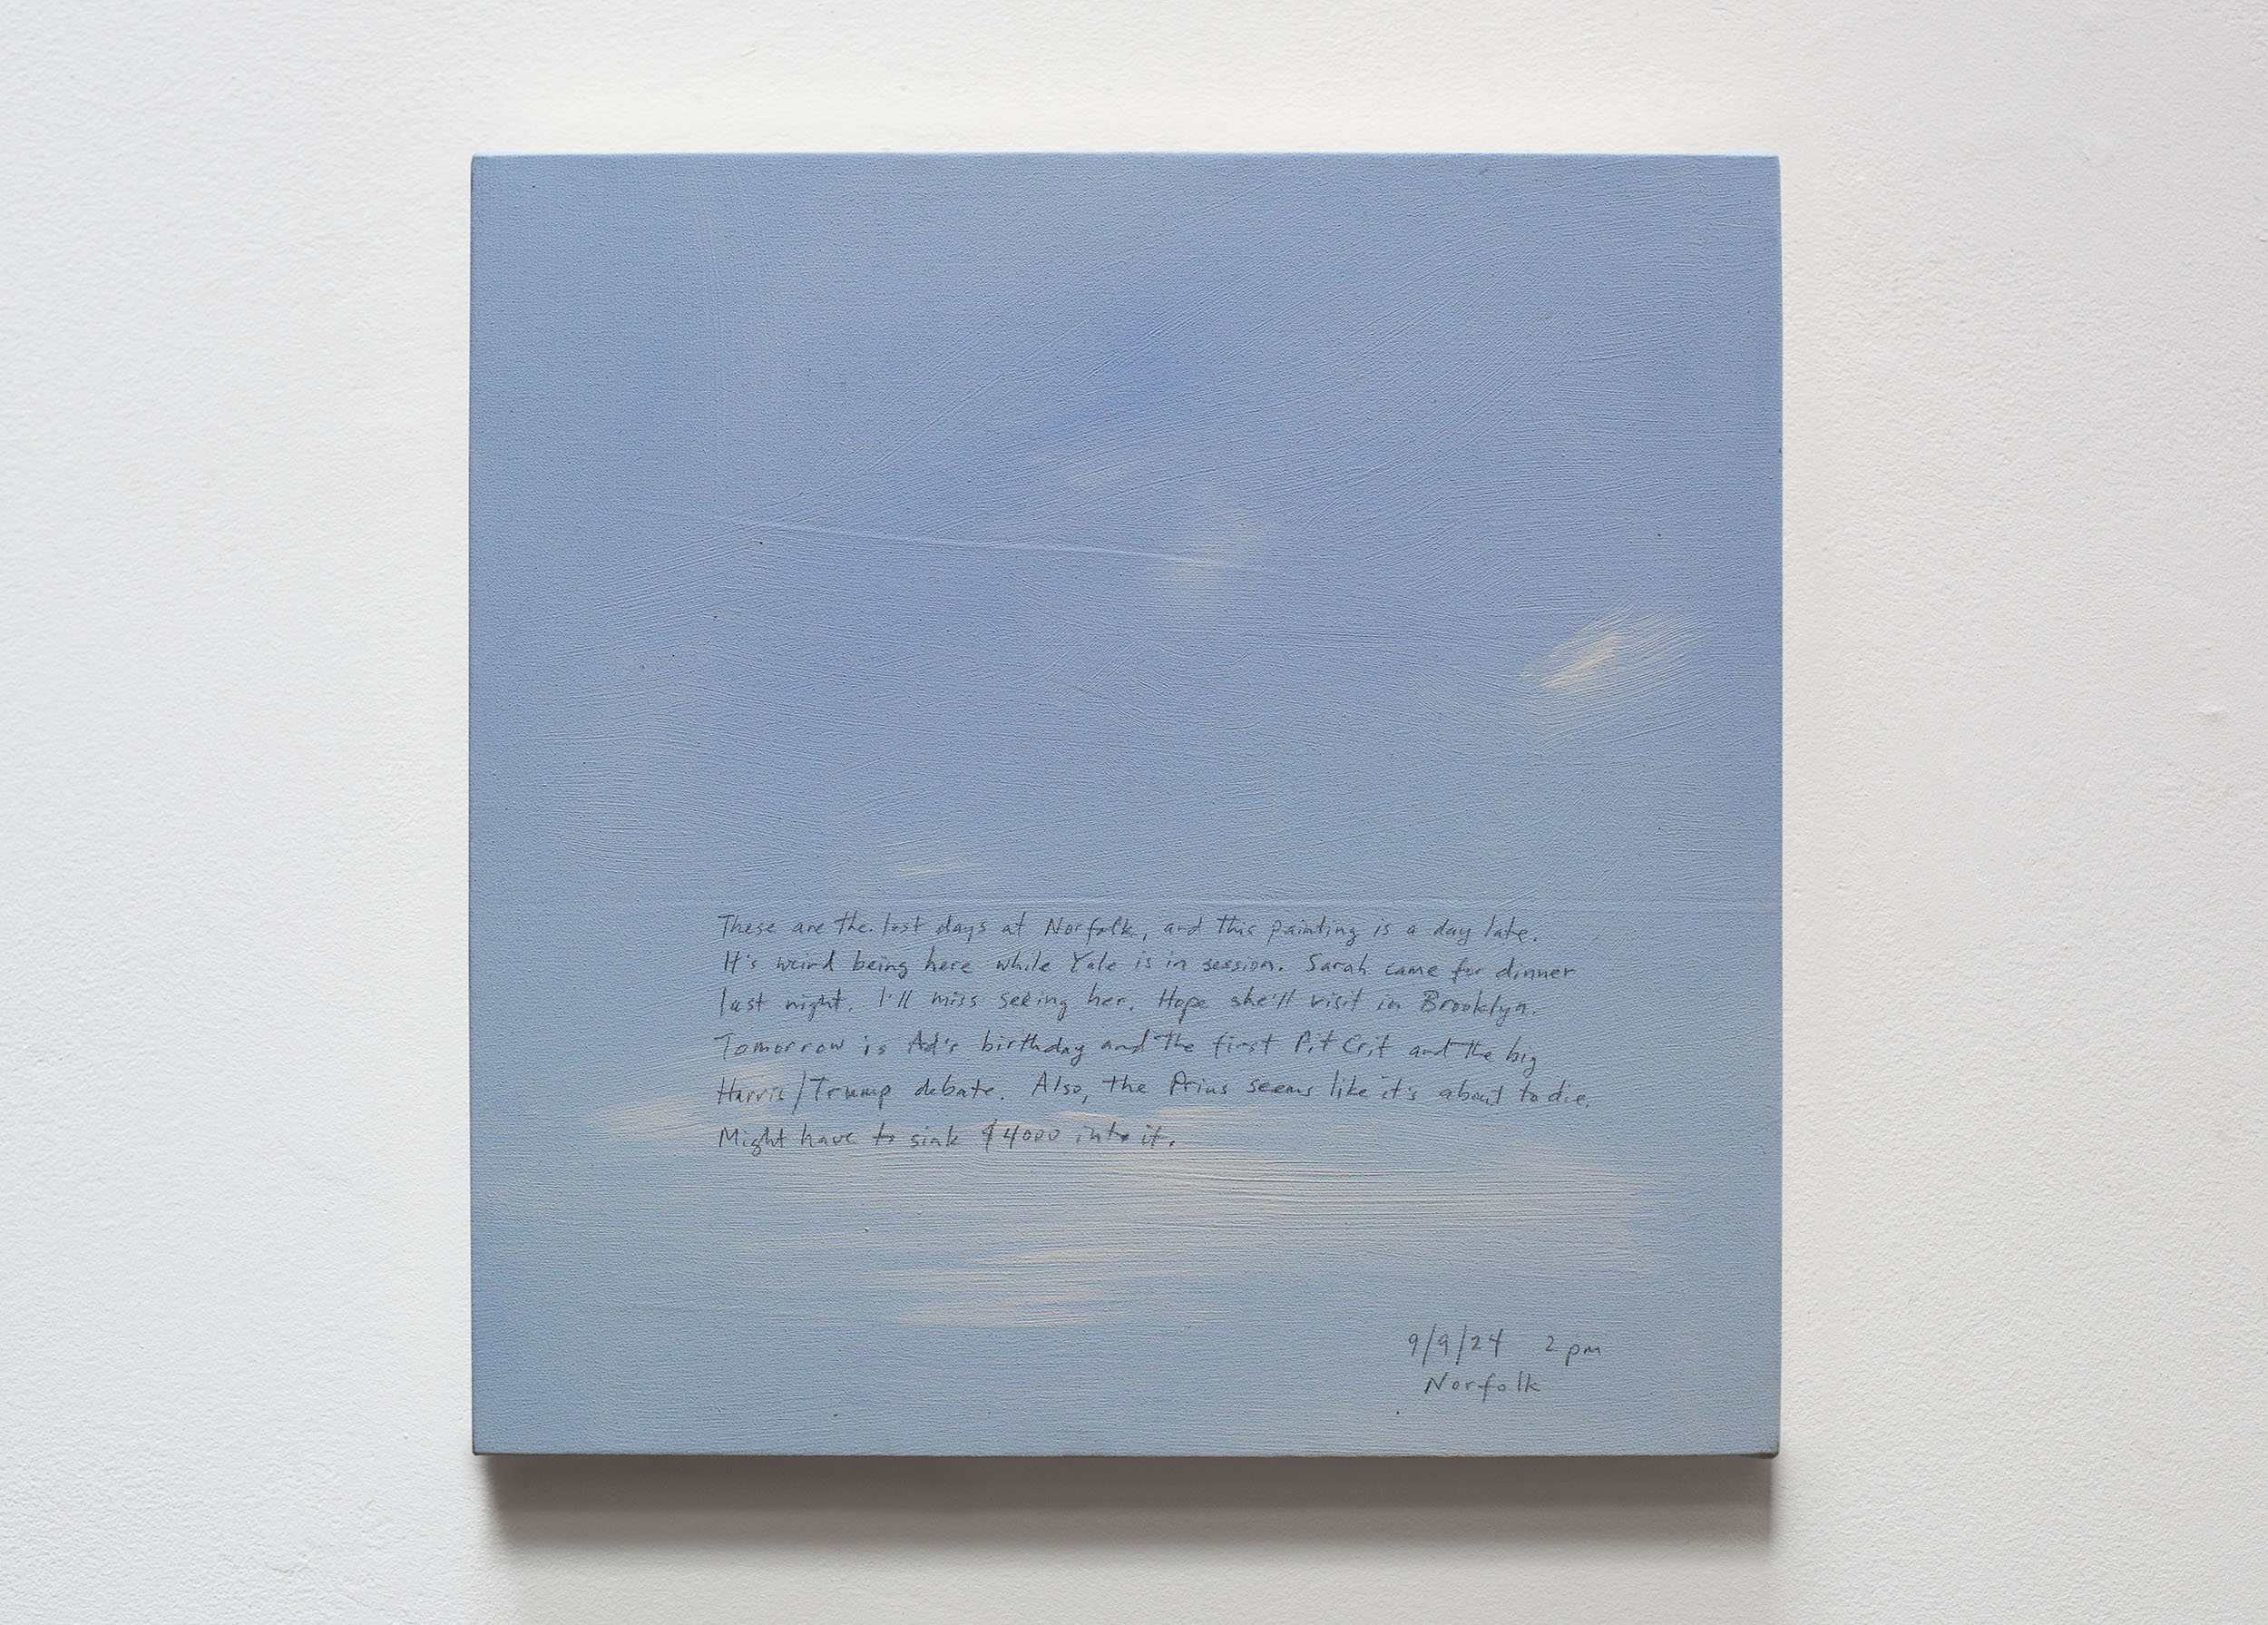 These are the last days at Norfolk, and this painting is a day late.
It's weird being here while Yale is in session. Sarah came for dinner
last night. I'll miss seeing her. Hope she'll visit in Brooklyn.
Tomorrow is Ad's birthday and the first Pit Crit and the big
Harris/Trump debate. Also, the Prius seems like it's about to die.
Might have to sink $4000 into it.
9/9/24 2 pm
Norfolk